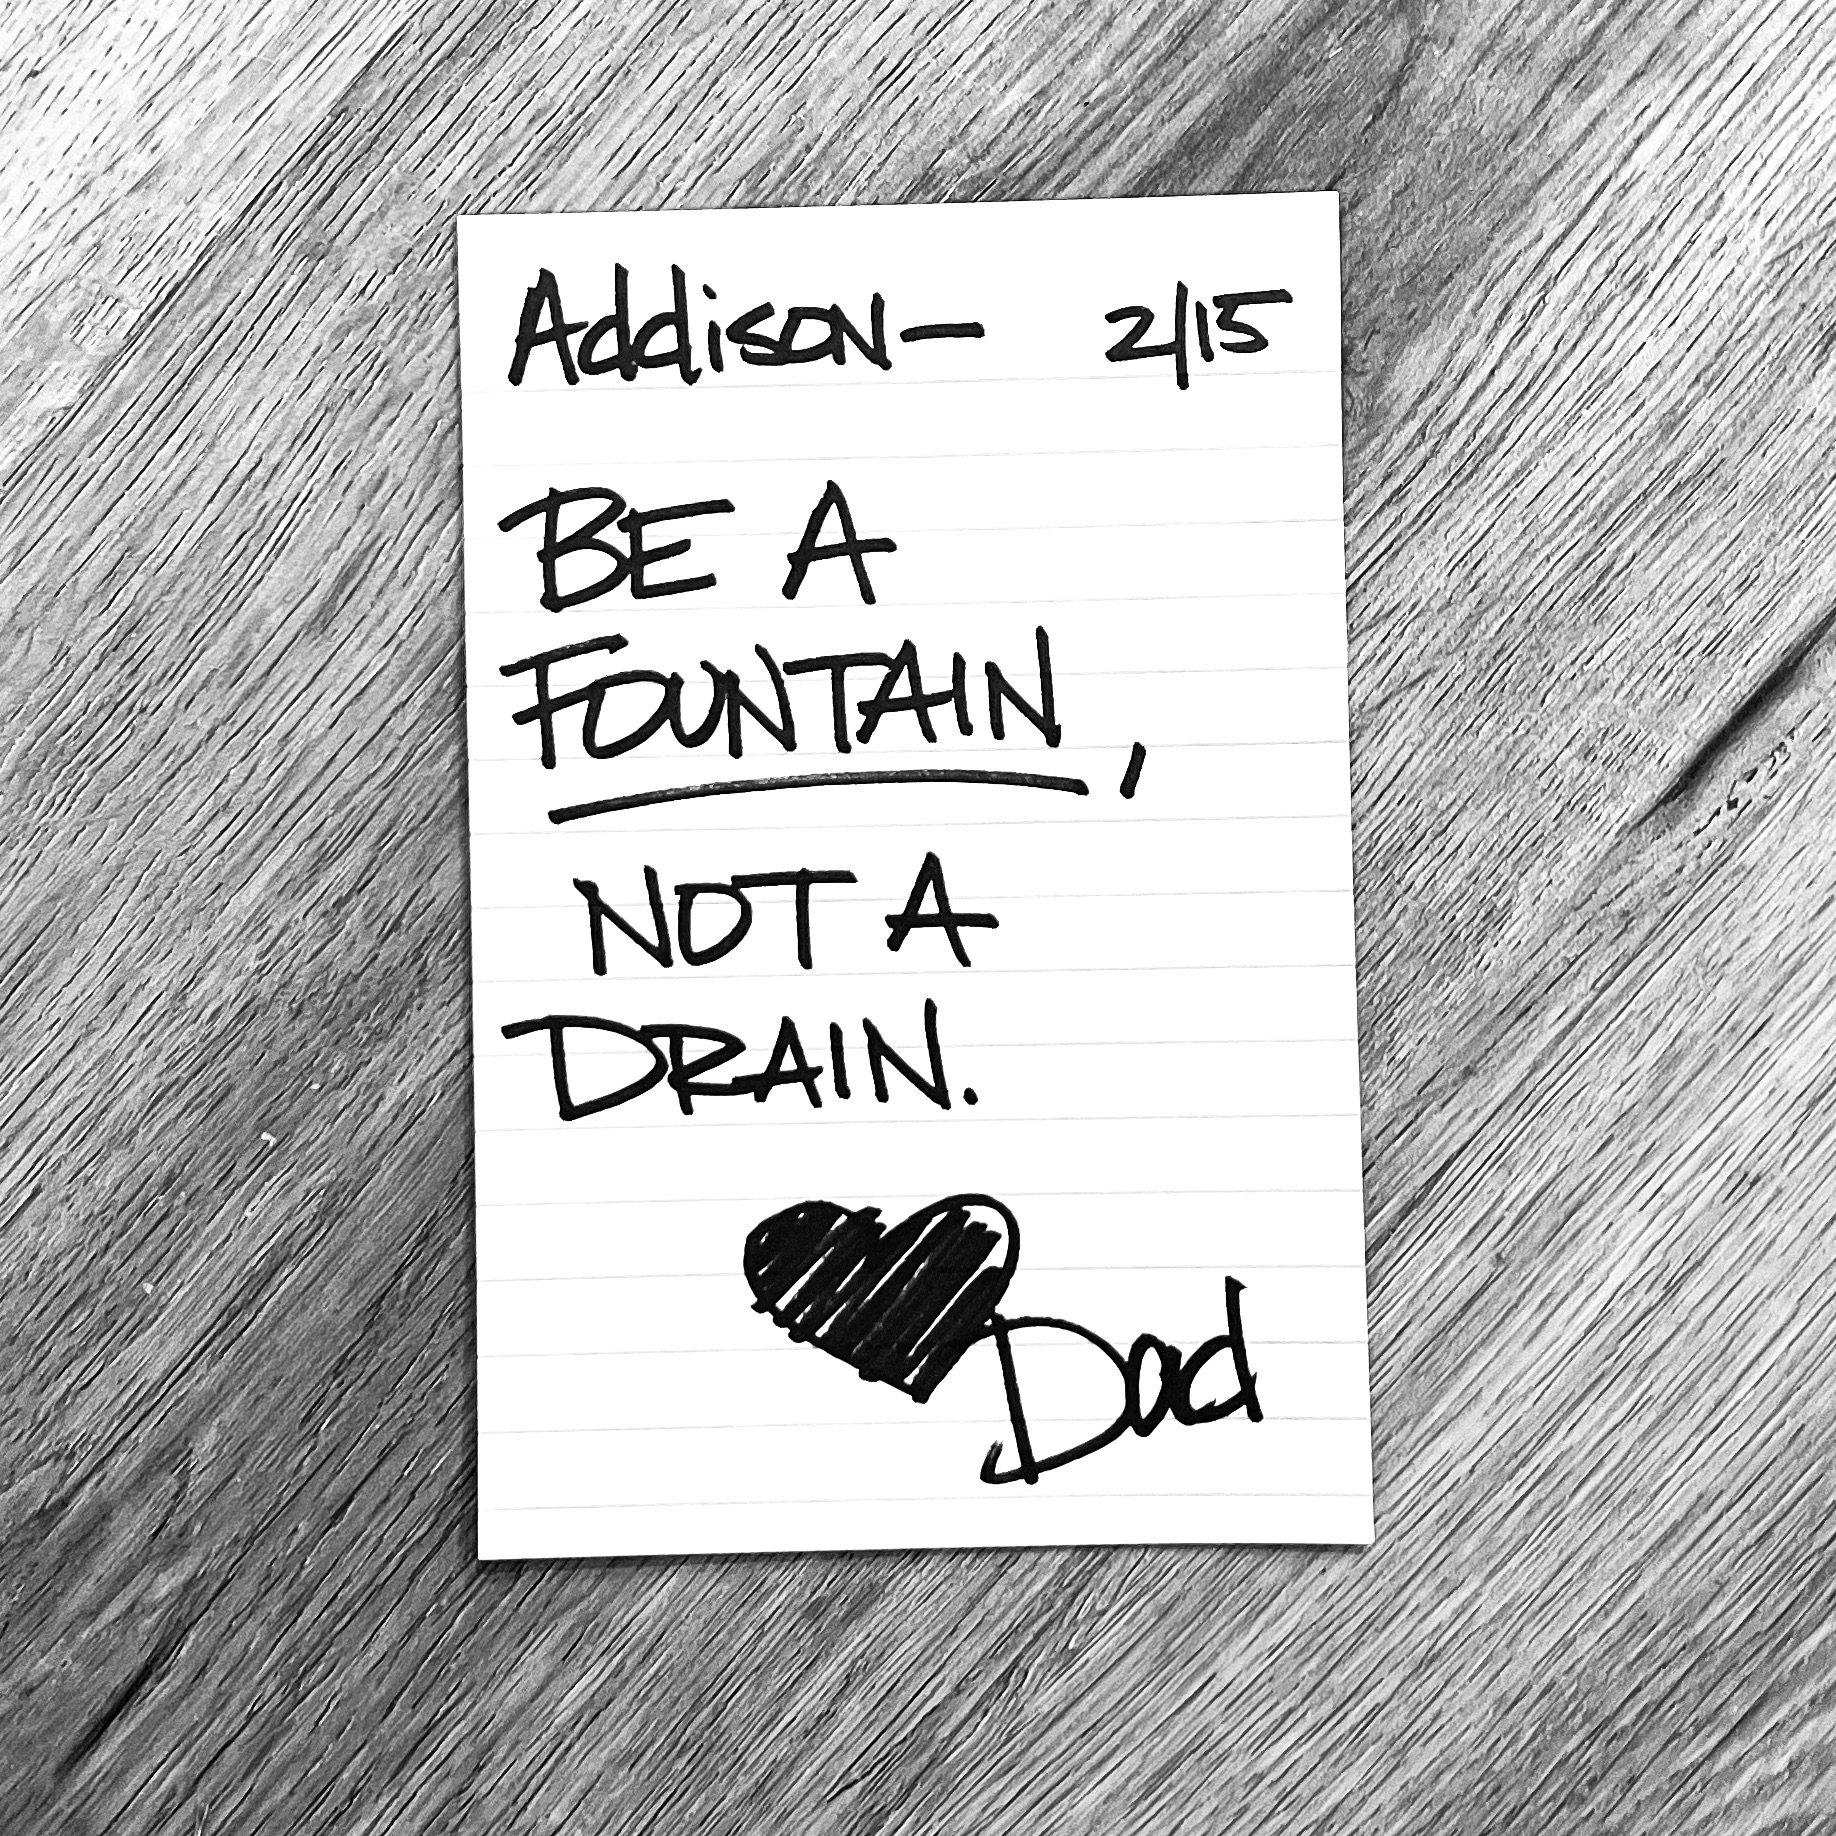 Addison— 2/15
BE A
FOUNTAIN,
NOT A
DRAIN.
Dad